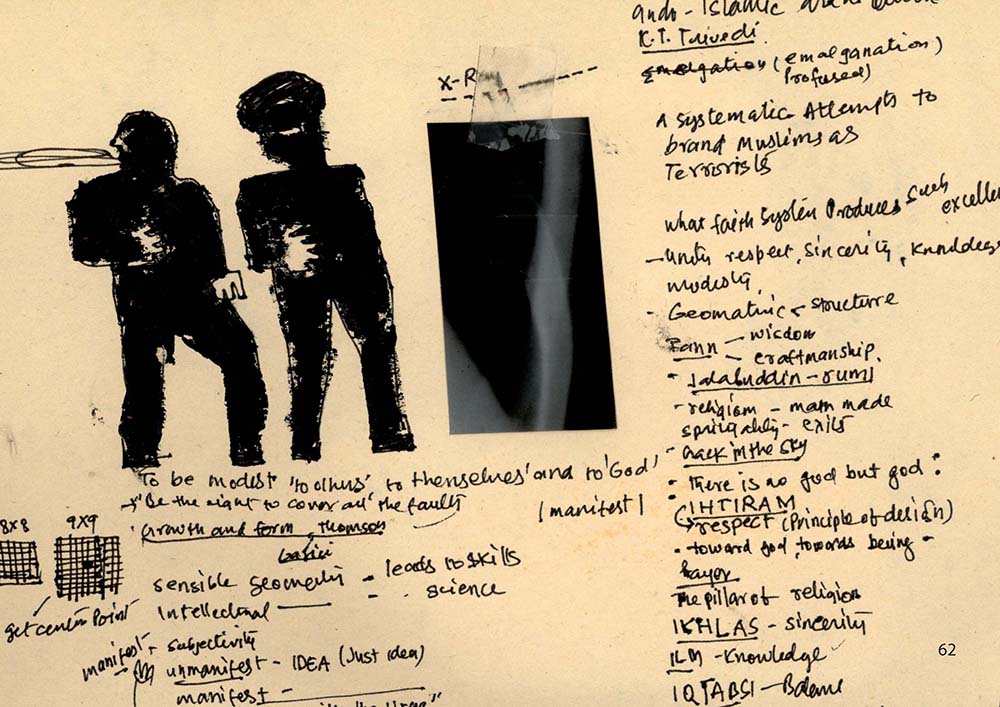 Indo - Islamic
K.T. Trivedi
(emalganation)
Profused)
X-R
A systematic Attempts to
brand Muslims as
Terrorists
what faith system Produces such
excelle
- Unity respect, sincerity, Knowledge
modesty,
- Geomatric - structure
Fann - wisdom
- craftmanship.
- Jalaluddin - rumi
- religion - man made
- exits
- crack in the sky
- There is no god but god :
- IHTIRAM
respect (Principle of design)
- toward god, towards being -
The pillar of religion
IKHLAS - sincerity
ILM - Knowledge
IQTABSI - Balance
To be modest 'to others' to themselves' and to 'God'
→ 'Be the night to cover all' the faults
| manifest |
Growth and form, Thomson
8X8 9X9
get center Point
sensible geometry - leads to skills
- science
Intellectual
manifest - subjectivity
unmanifest - IDEA (Just idea)
manifest -
62